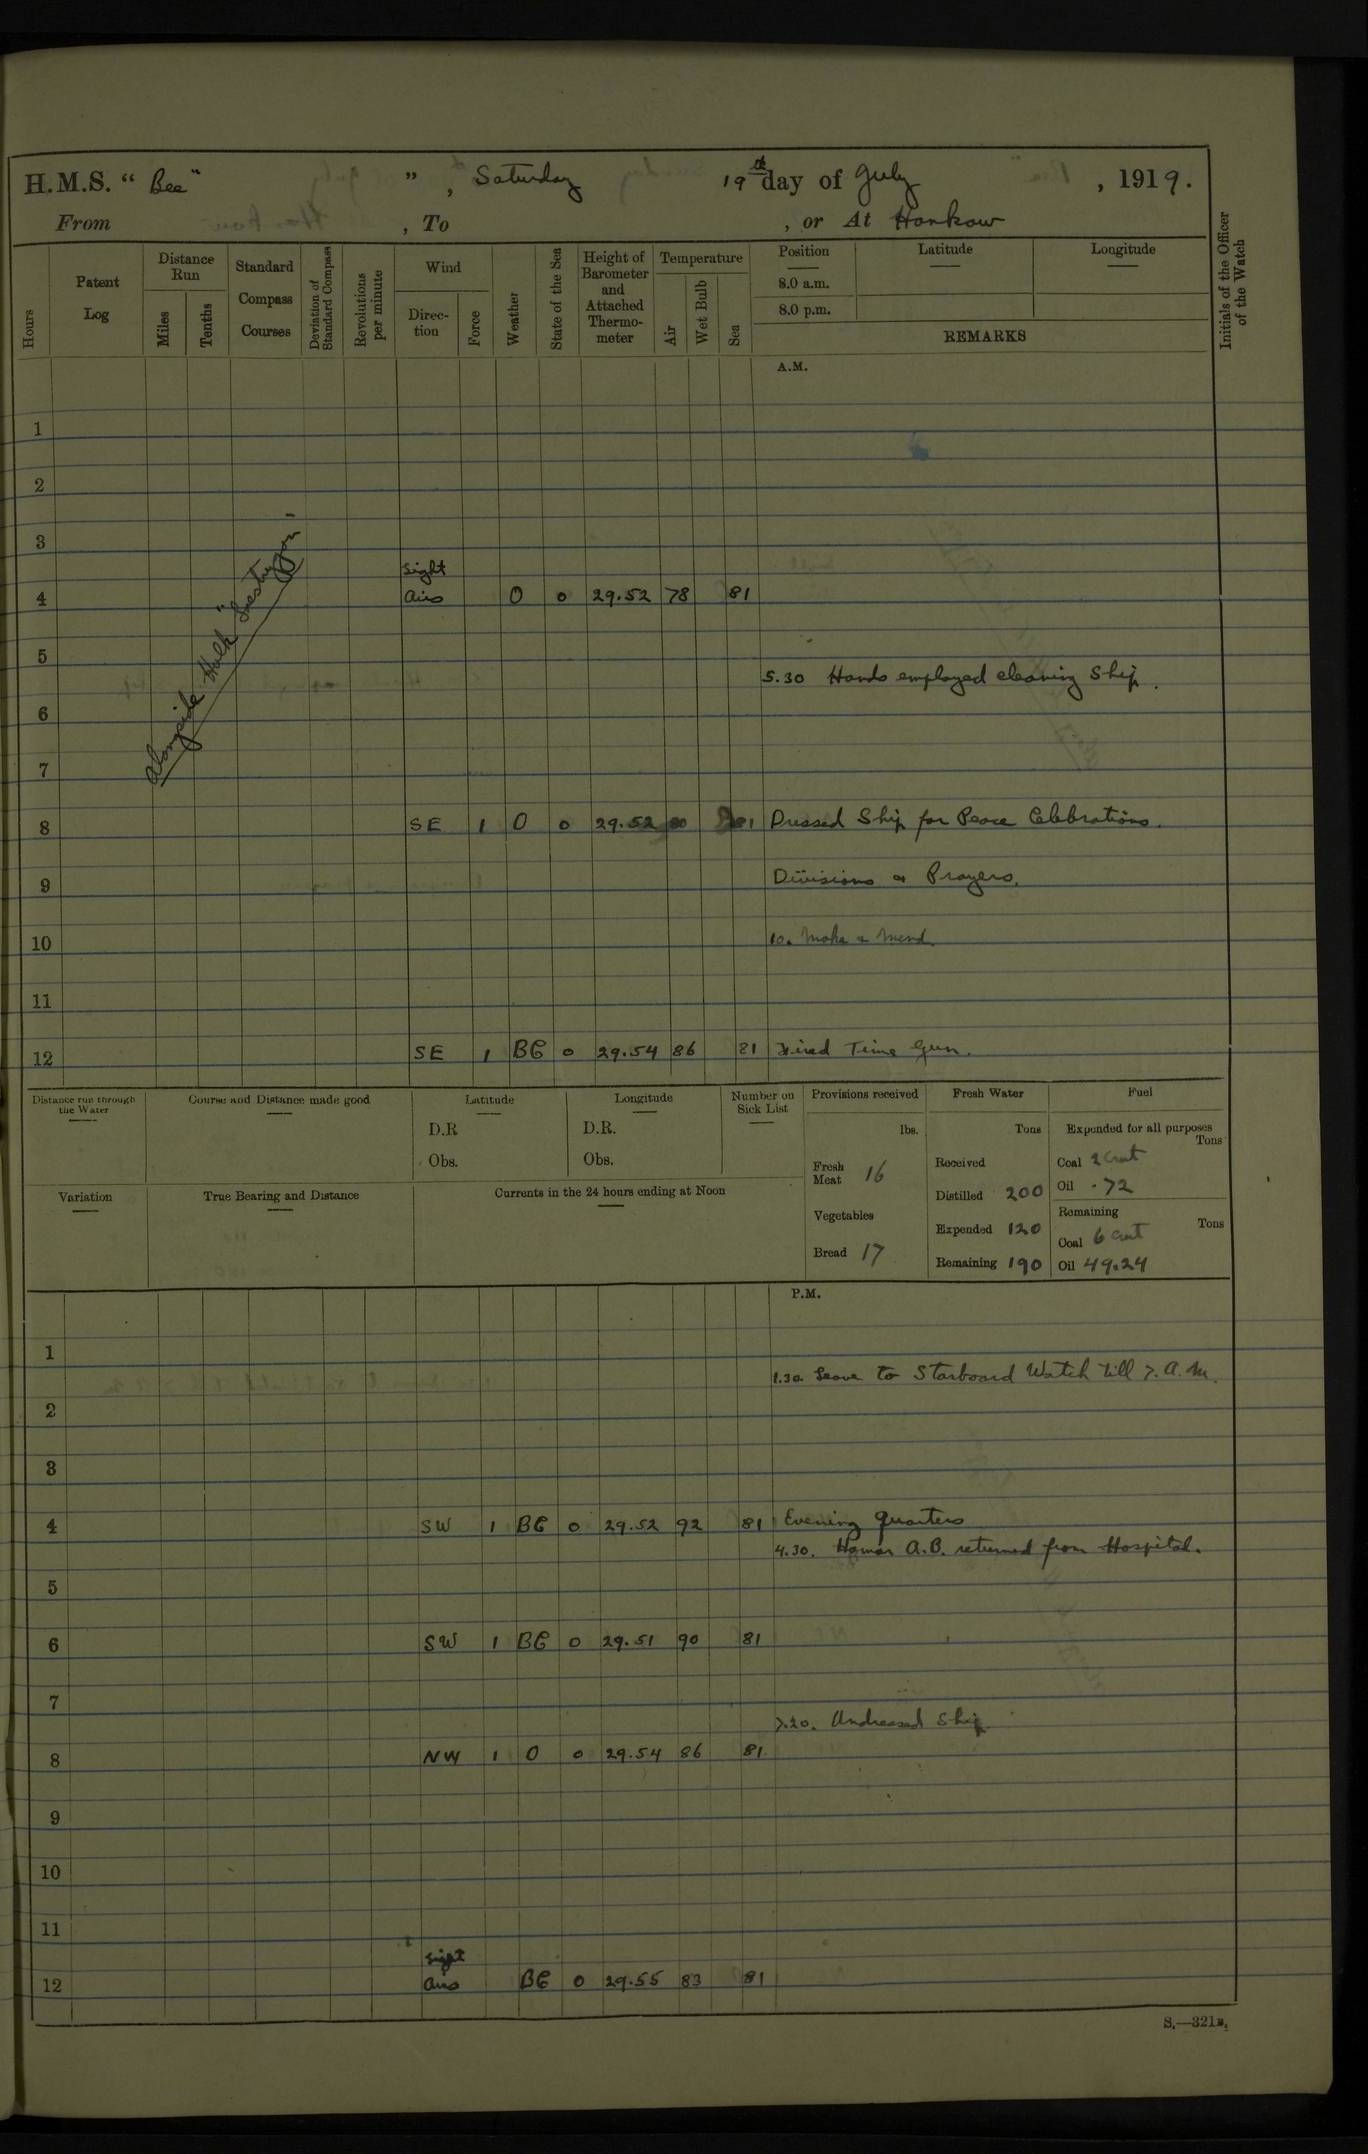 H.M.S. "Bee" ", Saturday 19th day of July, 1919.
From , To , or At Hankow
Hours
Patent Log
Distance Run
Miles
Tenths
Standard Compass Courses
Deviation of Standard Compass
Revolutions per minute
Wind
Direction
Force
Weather
State of the Sea
Height of Barometer and Attached Thermometer
Temperature
Air
Wet Bulb
Sea
Position Latitude Longitude
8.0 a.m.
8.0 p.m.
REMARKS
Initials of the Officer of the Watch
A.M.
1
2
3
Light
4 airs O 0 29.52 78 81
Alongside Hulk
5
5.30 Hands employed cleaning Ship.
6
7
8 SE 1 O 0 29.52 80 81 Dressed Ship for Peace Celebrations.
9 Divisions & Prayers.
10 10. Make & Mend.
11
12 SE 1 BC 0 29.54 86 81 Fired Time Gun.
Distance run through the Water
Course and Distance made good
Latitude
D.R
Obs.
Longitude
D.R.
Obs.
Number on Sick List
Provisions received
lbs.
Fresh Meat 16
Vegetables
Bread 17
Fresh Water
Tons
Received
Distilled 200
Expended 120
Remaining 190
Fuel
Expended for all purposes
Tons
Coal 2 cwt
Oil .72
Remaining
Tons
Coal 6 cwt
Oil 49.24
Variation
True Bearing and Distance
Currents in the 24 hours ending at Noon
P.M.
1
1.30 Leave to Starboard Watch till 7. A.M.
2
3
4 SW 1 BC 0 29.52 92 81 Evening Quarters
4.30. A.B. returned from Hospital.
5
6 SW 1 BC 0 29.51 90 81
7
7.20. Undressed Ship.
8 NW 1 O 0 29.54 86 81
9
10
11
Light
12 airs BC 0 29.55 83 81
S.—321B.